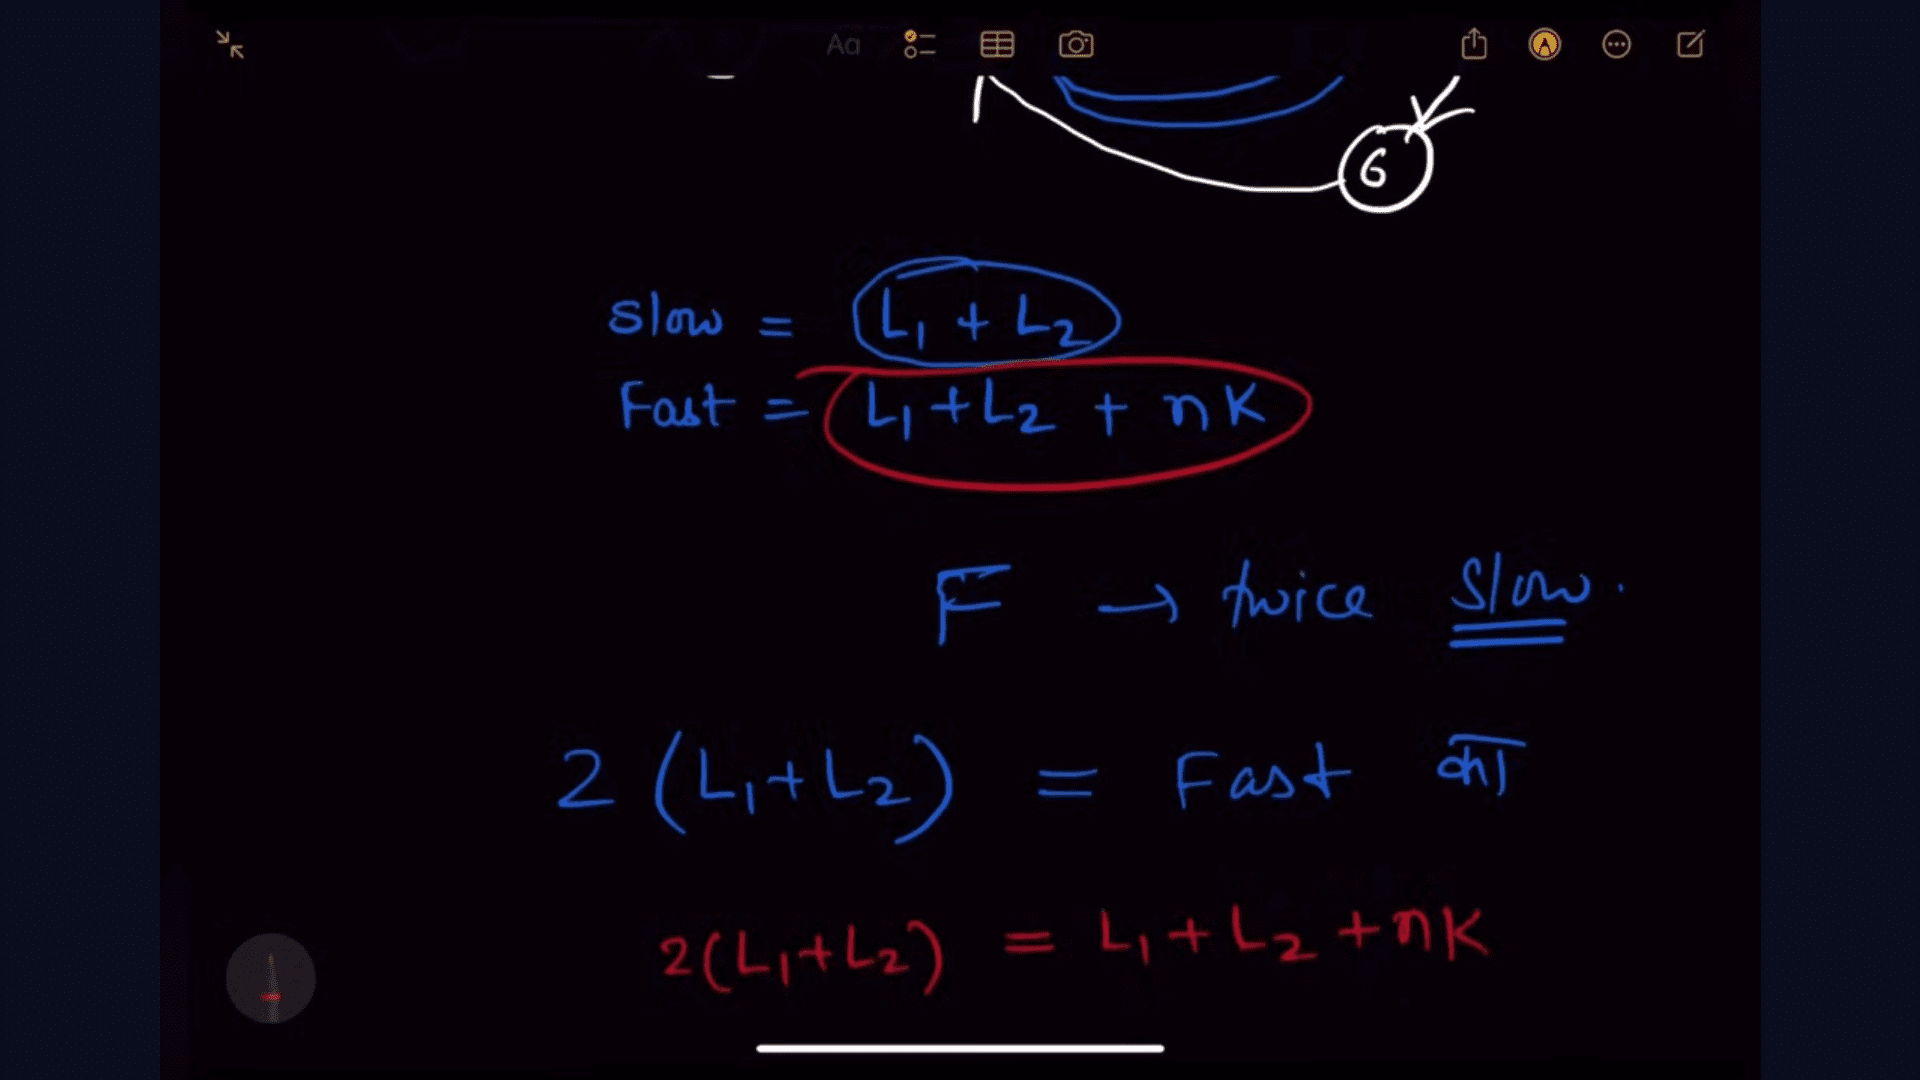 Aa
6
Slow = L₁ + L₂
Fast = L₁ + L₂ + nK
F → twice Slow.
2 (L₁+L₂) = Fast का
2(L₁+L₂) = L₁ + L₂ + nK